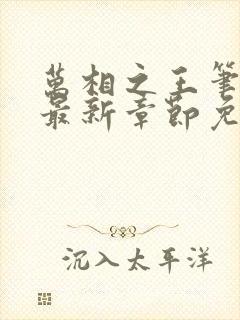 萬相之王筆
最新章節免
沉入太平洋